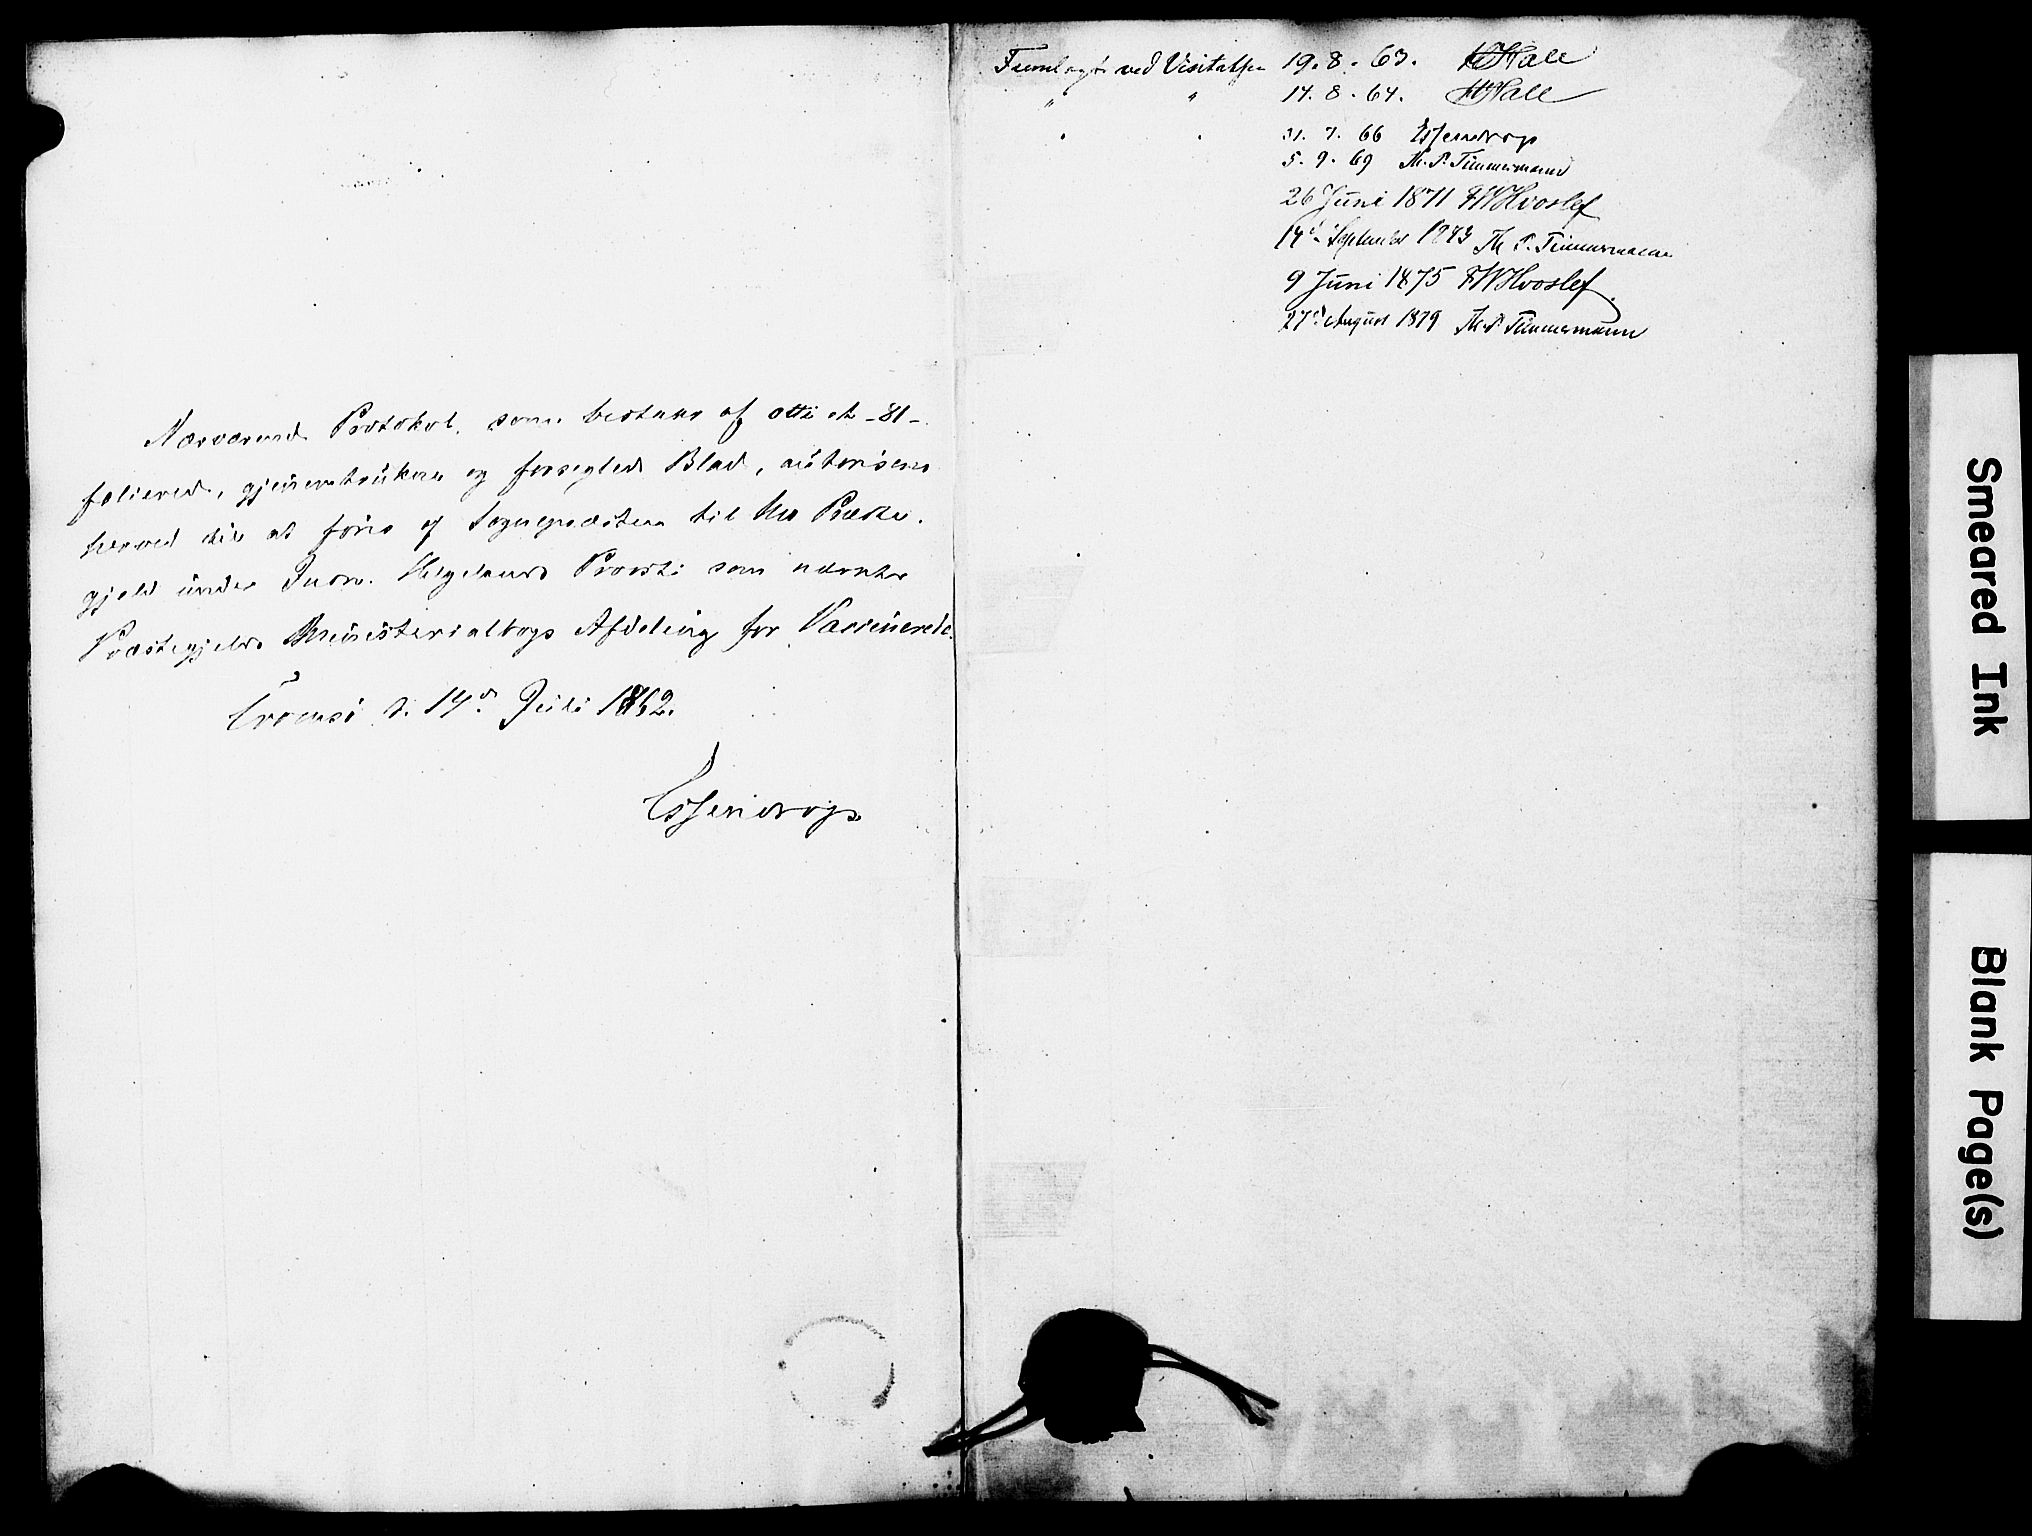 Nærværende Protokol, som bestaar af otti et -81-
folierede, gjennemtrukne og forseglede Blade, autoriseres
herved til at føres af Sognepræsten til Præste-
gjeld under Provsti som nævnte
Præstegjelds Ministerialbogs Afdeling for Vaccinerede.
Tromsø d. 14de Juli 1862.
Essendrop
Fremlagt ved Visitatsen 19. 8. 63. Hall
" " 14. 8. 64. Hall
" " 31. 7. 66 Essendrop
5. 9. 69 Th. P. Timmermann
26 Juni 1871 FWHvoslef
14de September 1873 Th. P. Timmermann
9 Juni 1875 FWHvoslef.
27de August 1879 Th. P. Timmermann
Smeared Ink
Blank Page(s)